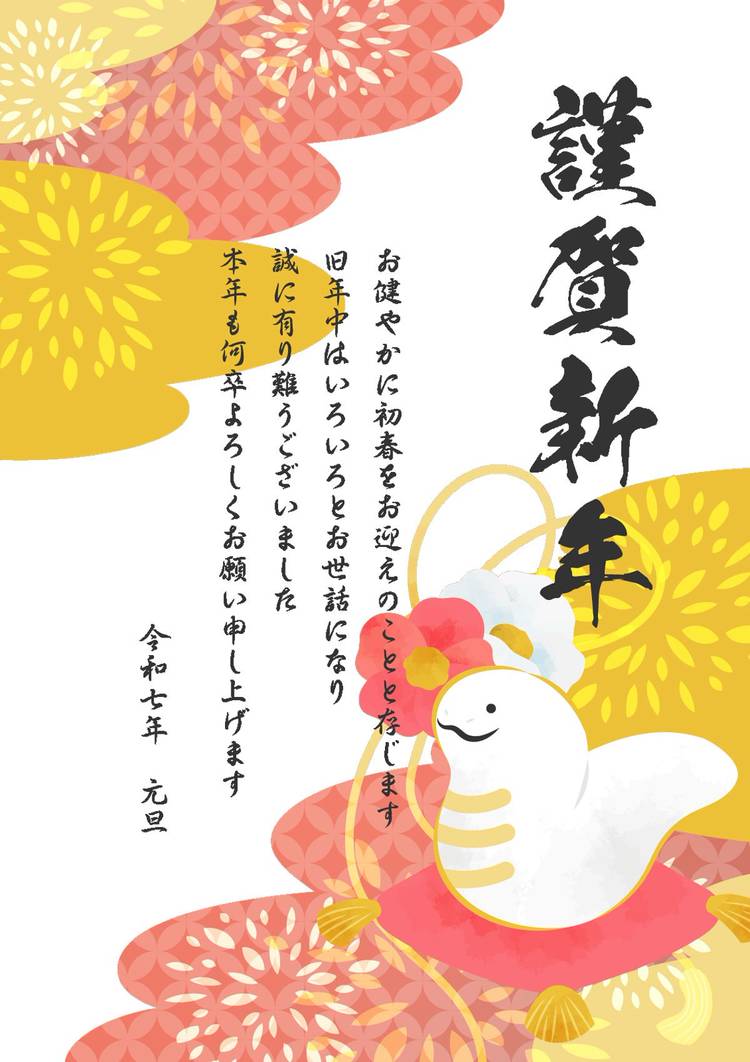 謹賀新年
お健やかに初春をお迎えのことと存じます
旧年中はいろいろとお世話になり
誠に有り難うございました
本年も何卒よろしくお願い申し上げます
令和七年　元旦